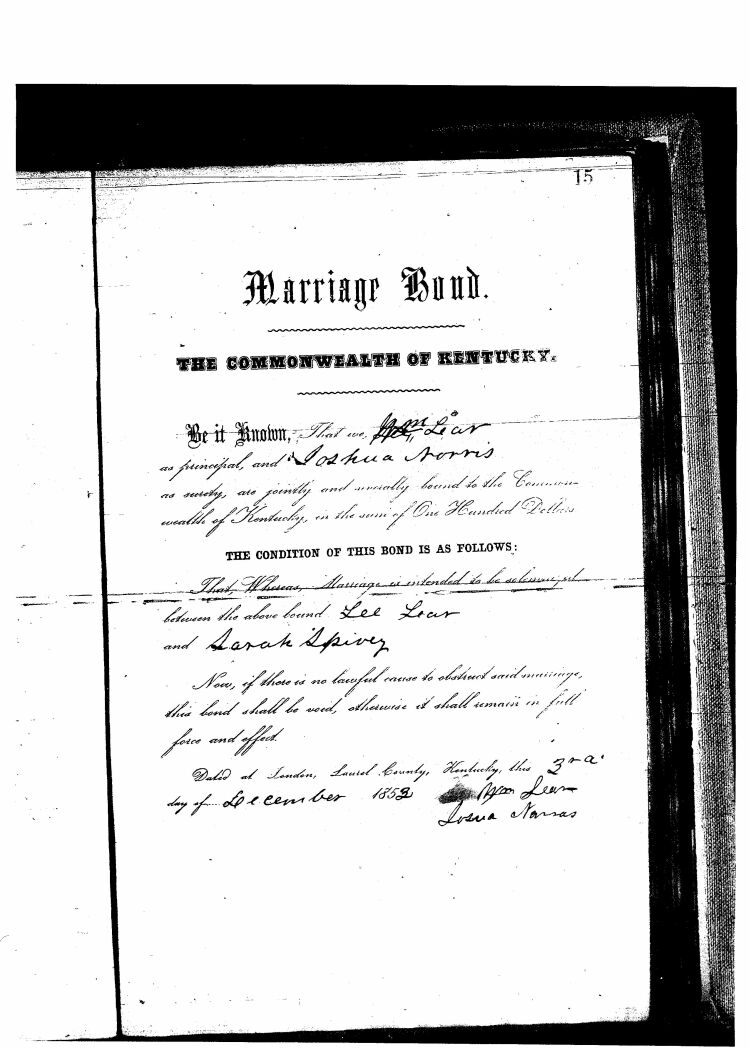 15
Marriage Bond.
THE COMMONWEALTH OF KENTUCKY.
Be it Known, That we, Wm Lear
as principal, and Joshua Norris
as surety, are jointly and severally bound to the Common-
wealth of Kentucky, in the sum of One Hundred Dollars
THE CONDITION OF THIS BOND IS AS FOLLOWS:
That, Whereas, Marriage is intended to be solemnized
between the above bound Lee Lear
and Sarah Spivey
Now, if there is no lawful cause to obstruct said marriage,
this bond shall be void, otherwise it shall remain in full
force and effect.
Dated at London, Laurel County, Kentucky, this 3rd
day of December 1852 Wm Lear
Josua Norras